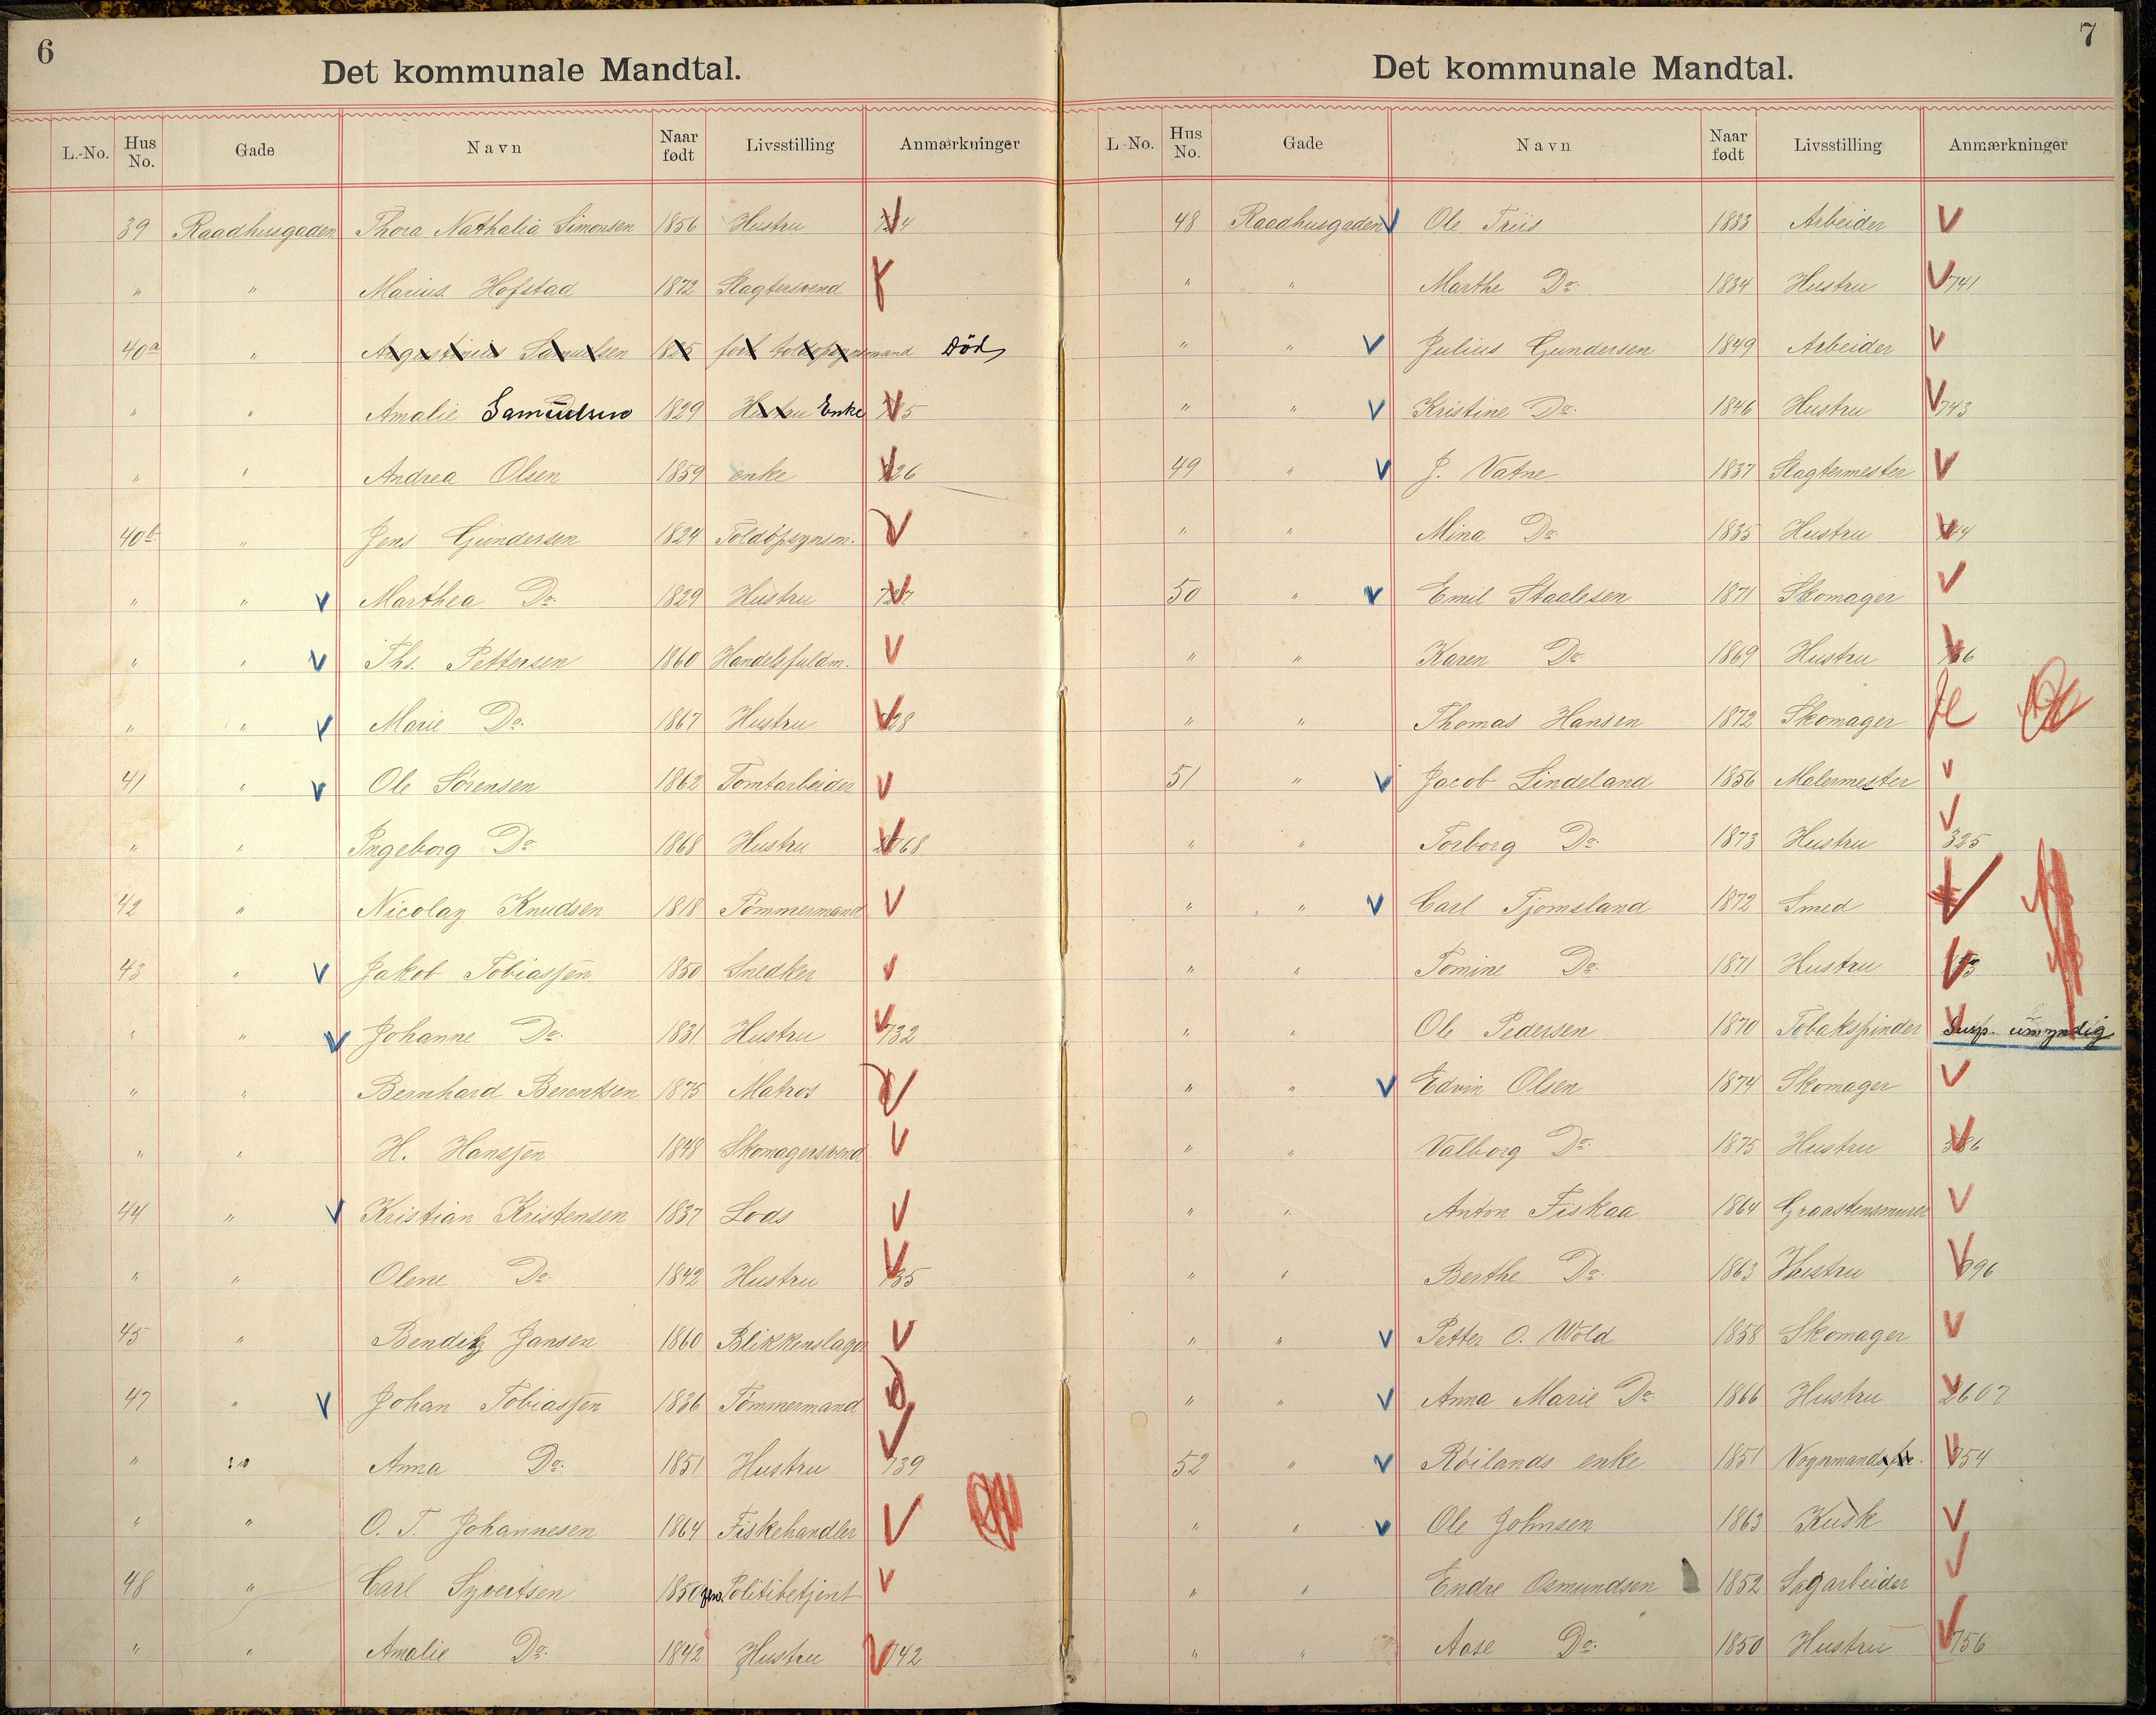 6
Det kommunale Mandtal.
L.-No. Hus No. Gade Navn Naar født Livsstilling Anmærkninger
39 Raadhusgaden Thora Nathalia Simonsen 1856 Hustru
" " Marius Hofstad 1872 Slagtersvend
40a " Augustinius Samuelsen 1825 forh. toldopsynsmand Död
" " Amalie Samuelsen 1829 Hustru Enke
" " Andrea Olsen 1859 enke 726
40b " Jens Gundersen 1824 Toldopsynsm.
" " V Marthea Do. 1829 Hustru 727
" " V Ths. Pettersen 1860 Handelsfuldm. V
" " V Marie Do. 1867 Hustru 728
41 " V Ole Sørensen 1862 Tomtarbeider V
" " Ingeborg Do. 1868 Hustru
42 " Nicolay Knudsen 1818 Tömmermand V
43 " V Jakob Tobiassen 1850 Snedker V
" " V Johanne Do. 1831 Hustru V 732
" " Bernhard Berentsen 1875 Matros
" " H. Hanssen 1848 Skomagersvend V
44 " V Kristian Kristensen 1837 Lods V
" " Olene Do. 1842 Hustru V 735
45 " Benditz Jansen 1860 Blikkenslager V
47 " V Johan Tobiassen 1836 Tömmermand
" " Anna Do. 1851 Hustru V 739
" " O. T. Johannesen 1864 Fiskehandler V
48 " Carl Syvertsen 1850 Politibetjent V
" " Amalie Do. 1842 Hustru V 742
7
Det kommunale Mandtal.
L.-No. Hus No. Gade Navn Naar født Livsstilling Anmærkninger
48 Raadhusgaden V Ole Friis 1833 Arbeider V
" " Marthe Do. 1834 Hustru V 741
" " V Julius Gundersen 1849 Arbeider V
" " V Kristine Do. 1846 Hustru V 743
49 " V J. Vatne 1837 Slagtermester V
" " Mina Do. 1835 Hustru 744
50 " V Emil Staalesen 1871 Skomager V
" " Karen Do. 1869 Hustru
" " Thomas Hansen 1872 Skomager
51 " V Jacob Lindeland 1856 Malermester V
" " Torborg Do. 1873 Hustru V 325
" " V Carl Tjomsland 1872 Smed V
" " Tomine Do. 1871 Hustru V
" " Ole Pedersen 1870 Tobakspinder V Susp. umyndig
" " V Edvin Olsen 1874 Skomager V
" " Valborg Do. 1875 Hustru
" " Anton Fiskaa 1864 Graastensmurer V
" " Berthe Do. 1863 Hustru V
" " V Petter O. Wold 1858 Skomager V
" " V Anna Marie Do. 1866 Hustru V 2607
52 " V Röilands enke 1851 Vognmands V 754
" " V Ole Johnsen 1863 Kusk V
" " Endre Osmundsen 1852 Sagarbeider V
" " Aase Do. 1850 Hustru V 756